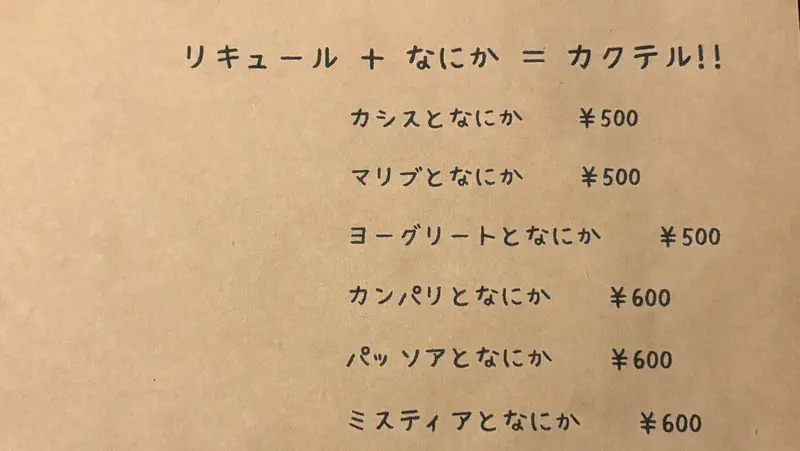 リキュール + なにか = カクテル!!
カシスとなにか ¥500
マリブとなにか ¥500
ヨーグリートとなにか ¥500
カンパリとなにか ¥600
パッソアとなにか ¥600
ミスティアとなにか ¥600